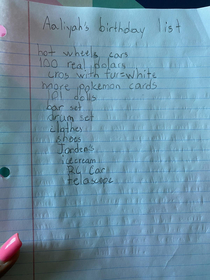 Aaliyah's birthday list
hot wheels cars
100 real dolars
cros with tur=white
more pokemon cards
lol dolls
bar set
drum set
clothes
shoes
icecream
RC Car
telascope